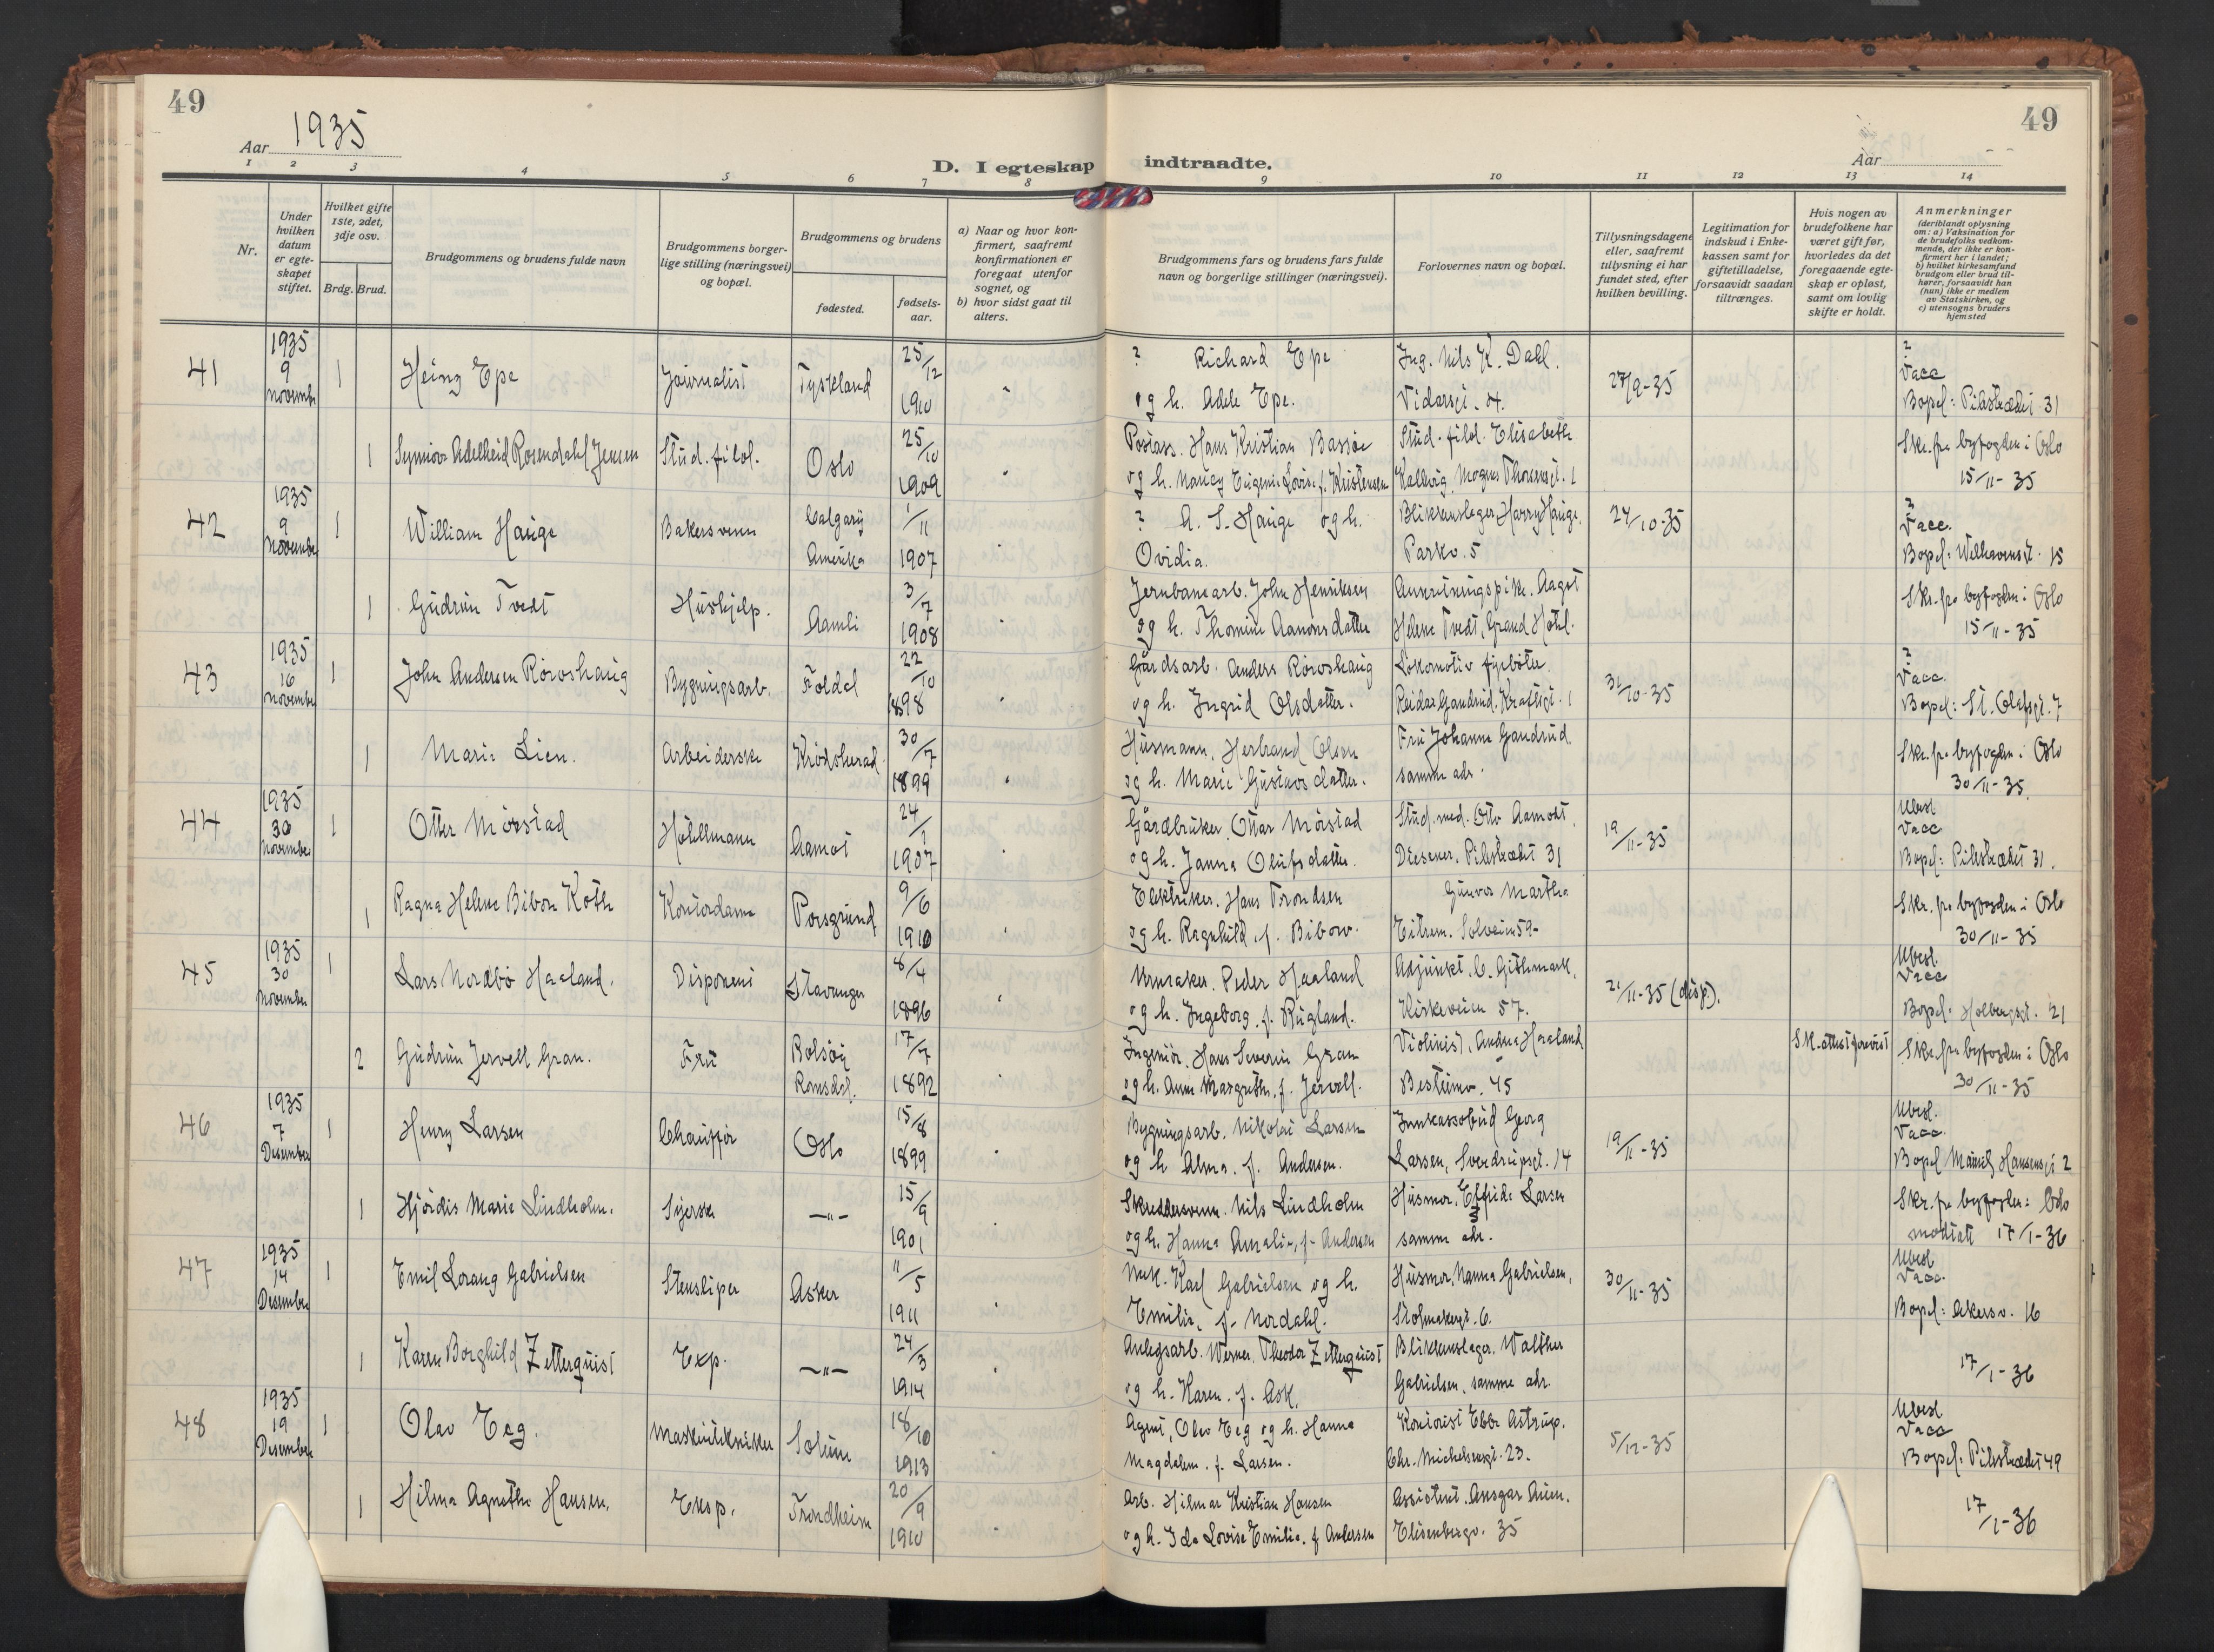 49
49
Aar 1935
D. I egteskap indtraadte.
Aar
1 2 3 4 5 6 7 8 9 10 11 12 13 14
Nr.
Under hvilken datum er egteskapet stiftet.
Hvilket gifte 1ste, 2det, 3dje osv.
Brdg. Brud.
Brudgommens og brudens fulde navn
Brudgommens borgerlige stilling (næringsvei) og bopæl.
Brudgommens og brudens
fødested.
fødselsaar.
a) Naar og hvor konfirmert, saafremt konfirmationen er foregaat utenfor sognet, og
b) hvor sidst gaat til alters.
Brudgommens fars og brudens fars fulde navn og borgerlige stillinger (næringsvei).
Forlovernes navn og bopæl.
Tillysningsdagene eller, saafremt tillysning ei har fundet sted, efter hvilken bevilling.
Legitimation for indskud i Enkekassen samt for giftetilladelse, forsaavidt saadan tiltrænges.
Hvis nogen av brudefolkene har været gift før, hvorledes da det foregaaende egteskap er opløst, samt om lovlig skifte er holdt.
Anmerkninger
(deriblandt oplysning om: a) Vaksination for de brudefolks vedkommende, der ikke er konfirmert her i landet; b) hvilket kirkesamfund brudgom eller brud tilhører, forsaavidt han (hun) ikke er medlem av Statskirken, og c) utensogns bruders hjemsted
41 1935 9 november 1 Heinz Epe Journalist Tyskland 25/12 1910 " ? Richard Epe og h. Adele Epe. Ing. Nils K. Dahl. Vidarsgt. 4. 27/9-35 ? Vacc Bopel: Pilestredet 31
1 Synnøve Adelheid Rosendahl Jensen Stud. filol. Oslo 25/10 1909 " Postass. Hans Kristian Bassøe og h. Nancy Eugenie Lovise f. Kristensen Stud. filol. Elisabeth Kallevig, Magnus Thorsensgt. 1 Skr. fra byfogden i Oslo 15/11-35
42 1935 9 November 1 William Hauge Bakersvenn Calgary Amerika 1/11 1907 " ? A. S. Hauge og h. Ovidia. Blikkenslager Harry Hauge. Parkv. 5 24/10-35 ? Vacc. Bopel: Welhavensgt. 15
1 Gudrun Tvedt Hushjelp. Aamli 3/7 1908 Jernbanearb. John Henriksen og h. Thomine Aanonsdatter Anretningspike Aagot Helene Tvedt, Grand Hotel. Skr. fra byfogden i Oslo 15/11-35
43 1935 16 November 1 John Andersen Røroshaug Bygningsarb. Foldal 22/10 1898 " Gårdsarb. Anders Røroshaug og h. Ingrid Olsdatter. Lokomotiv fyrbøter. Reidar Gandrud, Kraftsgt. 1 31/10-35 ? Vacc. Bopel: St. Olafsgt. 7
1 Marie Lien. Arbeiderske Krødsherad 30/7 1899 " Husmann. Herbrand Olsen og h. Marie Gustavsdatter. Fru Johanne Gandrud. samme adr. Skr. fra byfogden i Oslo 30/11-35.
44 1935 30 November 1 Otter Mørstad Hotellmann Aamot 24/1 1907 " Gårdbruker, Ottar Mørstad og h. Janna Olufsdatter. Stud. med. Otto Aamodt, Diesener, Pilestredet 31 19/11-35 Ubesl. Vacc Bopel: Pilestredet 31.
1 Ragna Helene Bibow Roth Kontordame Porsgrund 9/6 1910 " Elektriker. Hans Trondsen og h. Ragnhild, f. Bibow. Gunvor Martha Eitrem. Solveien 59- Skr. fra byfogden i Oslo 30/11-35
45 1935 30 November 1 Lars Nordbø Haaland. Disponent Stavanger 8/4 1896 " Urmaker. Peder Haaland og h. Ingeborg, f. Rugland. Adjunkt, C. Githmark, Kirkeveien 57. 21/11-35 (disp). Ubesl. Vacc Bopel: Holbergsgt. 21
2 Gudrun Jervell Gran. Fru Bolsøy Romsdal. 17/7 1892 " Ingeniør. Hans Severin Gran og h. Anna Margrethe, f. Jervell. Violinist, Andrea Haaland Bestumv. 45 Sk. attest forevist Skr. fra byfogden i Oslo 30/11-35
46 1935 7 Desember 1 Henry Larsen Chauffør Oslo 15/8 1899 " Bygningsarb. Nikolai Larsen og h. Alma. f. Andersen. Inkassobud Georg Larsen, Sverdrupsgt. 14 19/11-35 Ubesl. Vacc. Bopel Mauritz Hansensgt 2
1 Hjørdis Marie Lindholm. Syerske —"— 15/9 1901 Skreddersvenn. Nils Lindholm og h. Hanna Amalie, f. Andersen Husmor, Elfride Larsen samme adr. Skr. fra byfogden i Oslo mottatt 17/1-36
47 1935 14 Desember 1 Emil Lorang Gabrielsen Stensliper Asker 11/5 1911 " Mek. Karl Gabrielsen og h. Emilie, f. Nordahl. Husmor, Nanna Gabrielsen, Stolmakergt. 6. 30/11-35 Ubesl Vacc. Bopel: Akersv. 16
1 Karen Borghild Zetterquist Exp. —"— 24/3 1914 " Anlegsarb. Werner Theodor Zetterquist og h. Karen. f. Ask. Blikkenslager. Walther Gabrielsen, samme adr. 17/1-36
48 1935 19 Desember 1 Olav Eeg. Maskintekniker Solum 18/10 1913 Agent, Olav Eeg og h. Hanna Magdalene. f. Larsen. Kontorist Ebbe Astrup. Chr. Michelsensgt. 23. 5/12-35 Ubesl Vacc Bopel: Pilestredet 49
1 Hilma Agnethe Hansen. Eksp. Trondheim 20/9 1910 " Arb. Hilmar Kristian Hansen og h. Ida Lovise Emilie. f. Andersen Assistent. Ansgar Auen. Elisenbergv. 35 17/1-36